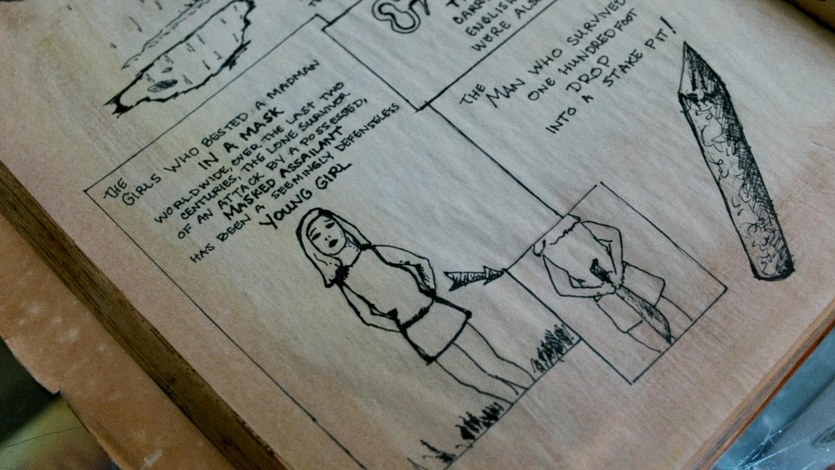 ENGLISH
WERE ALS
THE
GIRLS WHO BESTED A MADMAN
IN A MASK
WORLDWIDE, OVER THE LAST TWO
CENTURIES, THE LONE SURVIVOR
OF AN ATTACK BY A POSSESSED,
MASKED ASSAILANT
HAS BEEN A SEEMINGLY DEFENSELESS
YOUNG GIRL
THE
MAN WHO SURVIVED
ONE HUNDRED FOOT
DROP
INTO A STAKE PIT!